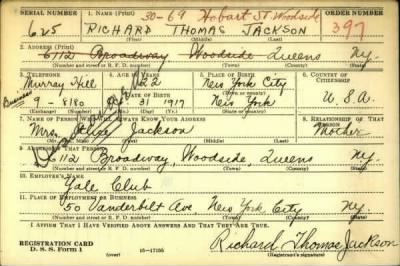 SERIAL NUMBER 1. NAME (Print) 50-69 Hobart St. Woodside ORDER NUMBER
625 RICHARD THOMAS JACKSON 397
(First) (Middle) (Last)
2. ADDRESS (Print)
6112 Broadway Woodside Queens N.Y.
(Number and street or R. F. D. number) (Town) (County) (State)
3. TELEPHONE 4. AGE IN YEARS 5. PLACE OF BIRTH 6. COUNTRY OF CITIZENSHIP
Murray Hill 22 New York City
Business DATE OF BIRTH (Town or county)
9-8180 31 1917 New York U.S.A.
(Mo.) (Day) (Yr.) (State or country)
7. NAME OF PERSON WHO WILL ALWAYS KNOW YOUR ADDRESS 8. RELATIONSHIP OF THAT PERSON
Mrs. Jackson Mother
(Mr., Mrs., Miss) (First) (Middle) (Last)
9. ADDRESS OF THAT PERSON
6112 Broadway, Woodside, Queens N.Y.
(Number and street or R. F. D. number) (Town) (County) (State)
10. EMPLOYER'S NAME
Yale Club
11. PLACE OF EMPLOYMENT OR BUSINESS
50 Vanderbilt Ave New York City N.Y.
(Number and street or R. F. D. number) (Town) (County) (State)
I AFFIRM THAT I HAVE VERIFIED ABOVE ANSWERS AND THAT THEY ARE TRUE.
Richard Thomas Jackson
REGISTRATION CARD
D. S. S. FORM 1 (over) (Registrant's signature)